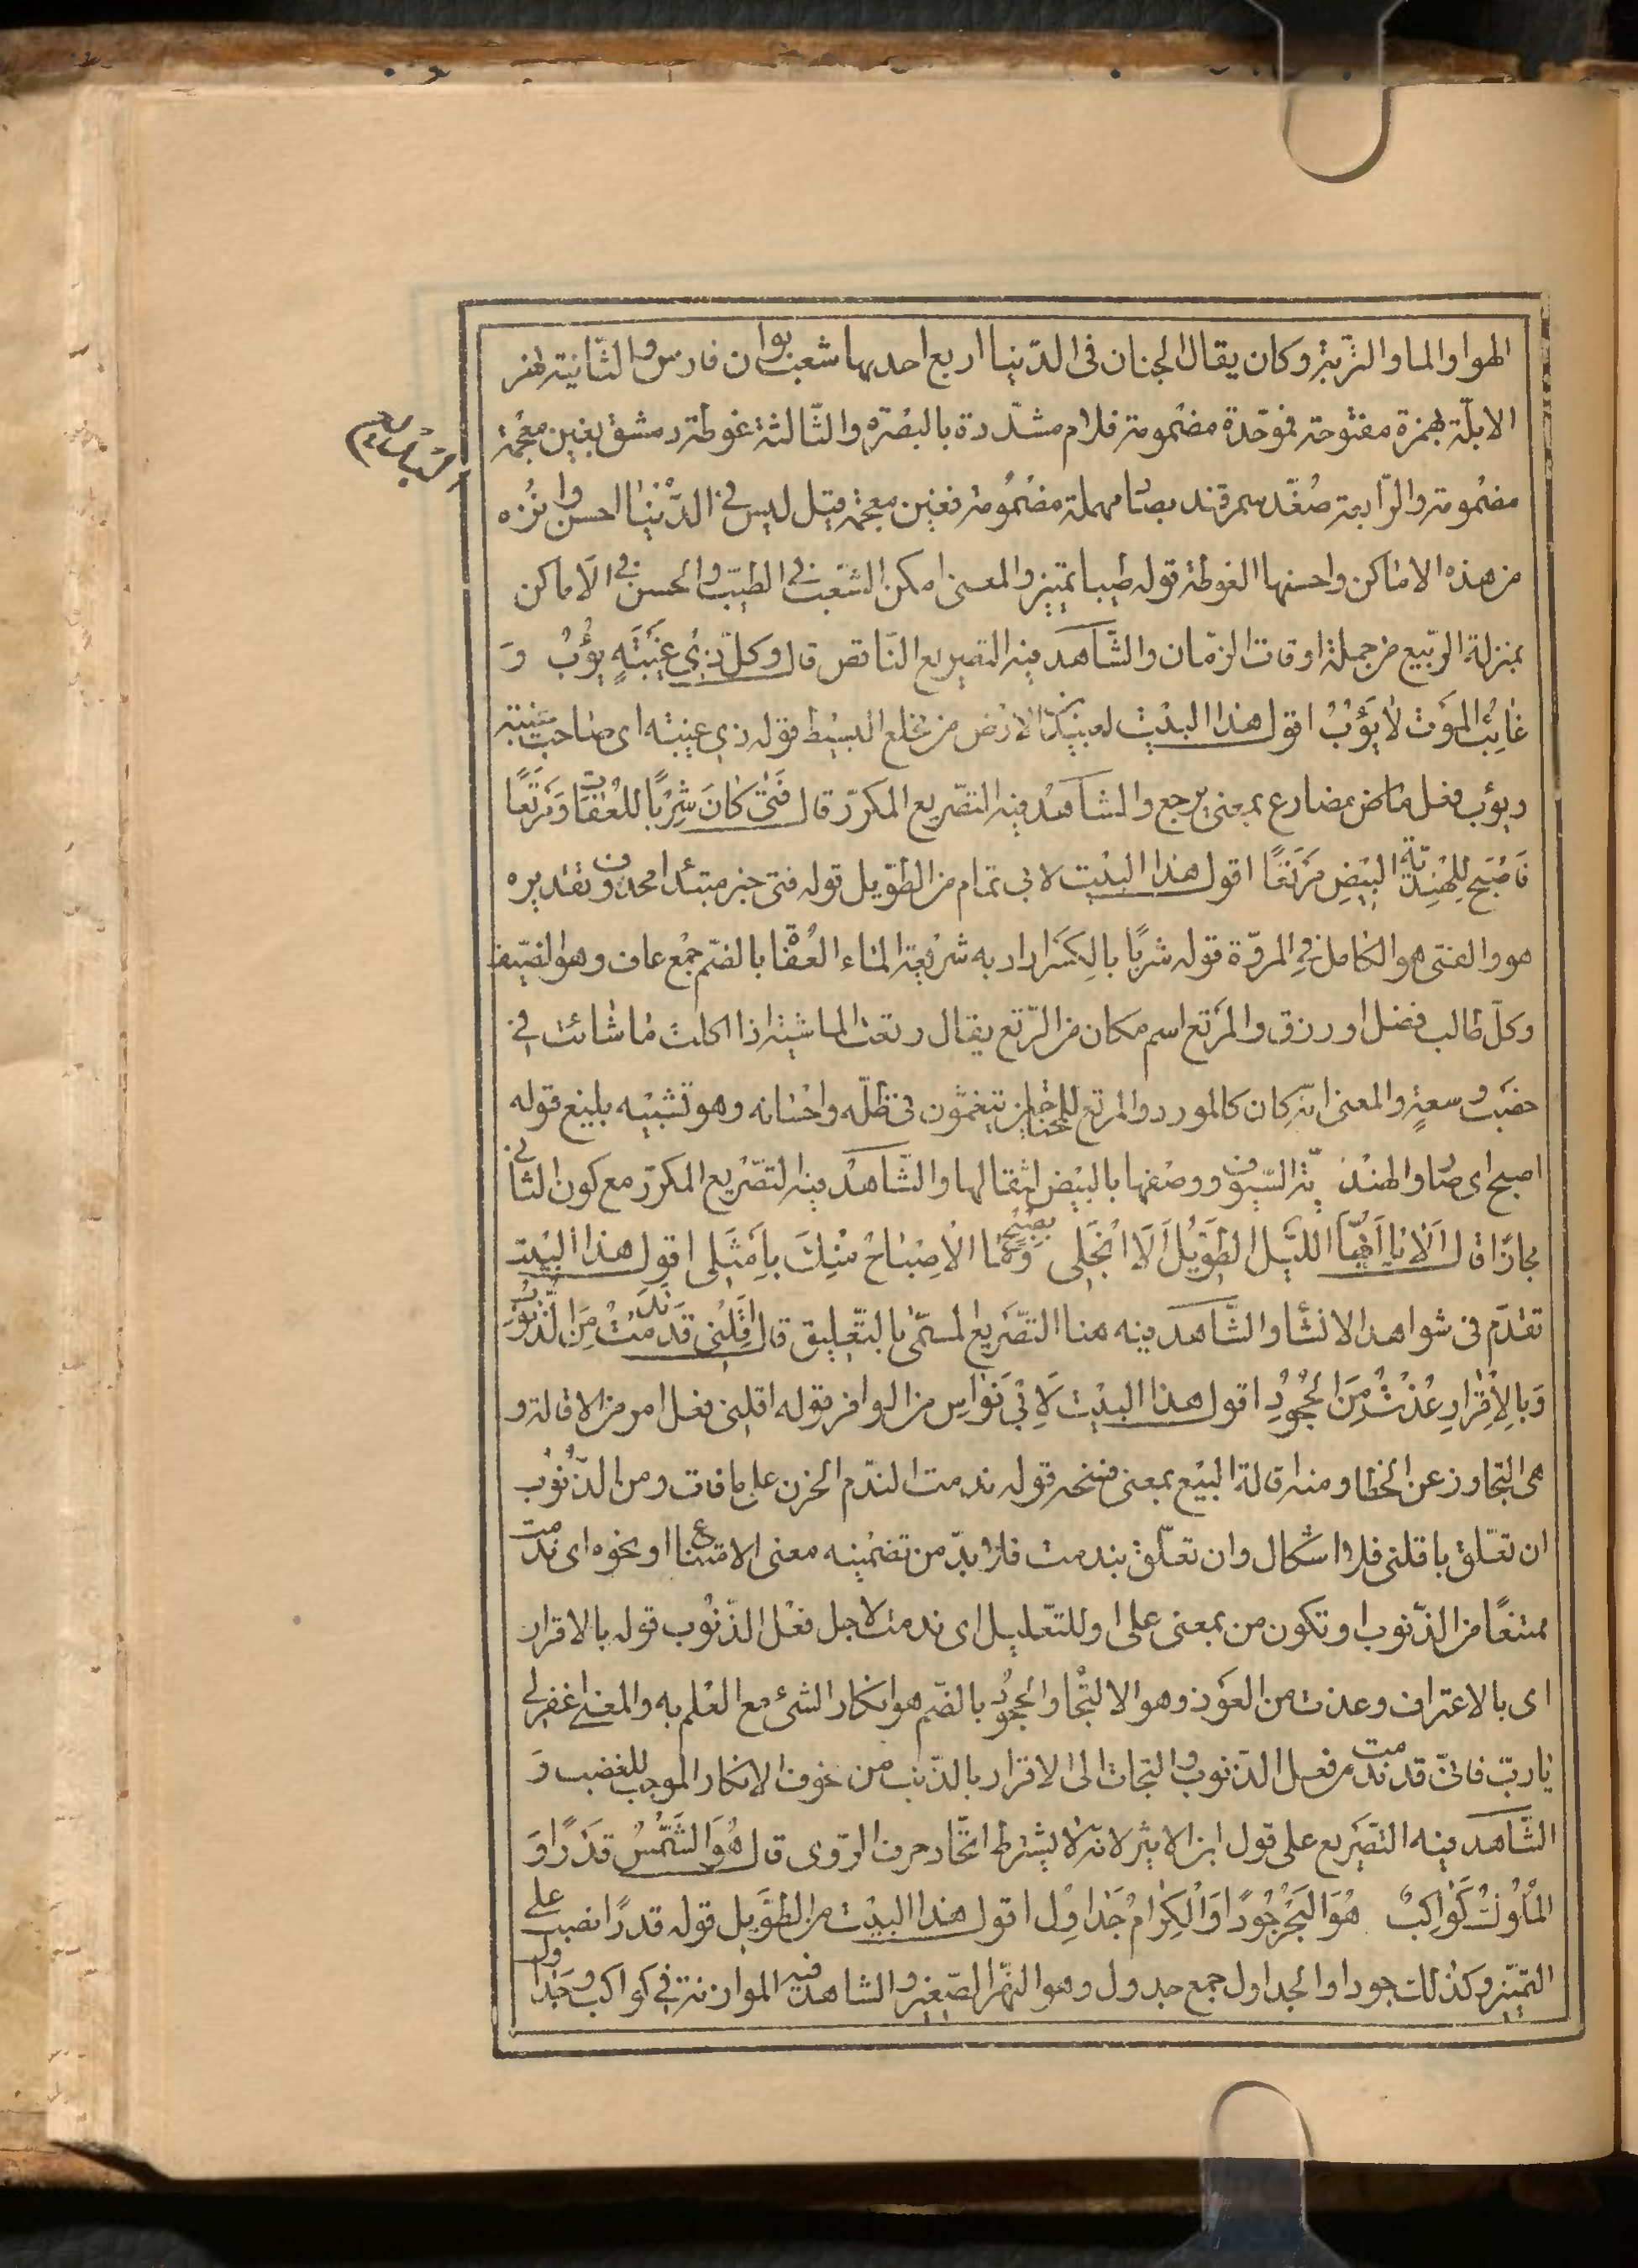 الهوا والما والتربة وكان يقال الجنان فى الدّنيا اربع احديها شعب بوان فارس والثّانية نهر
الابلّة بهمزة مفتوحة فموحّدة مضمومة فلام مشدّدة بالبصرة والثّالثة غوطة دمشق بغين معجمة
مضمومة والرّابعة صُغد سمرقند بصاد مهملة مضمُومة فغين معجمة قيل ليس فى الدّنيا احسن وانزه
من هذه الاماكن واحسنها الغوطة قوله طيبا تميز والمعنى امكن الشعب فى الطيب والحسن فى الاماكن
بمنزلة الرّبيع من جملة اوقات الزمان والشّاهد فيه التصريع النّاقص قال وكلّ ذِى غَيبَتَهٍ يؤُبُ وَ
غائِبُ المَوت لا يَؤُبُ اقول هذا البيت لعبيد الارض من مخلع البسيط قوله ذي غيبته اى صاحب غيبته
ويؤب فعل ماض مضارع بمعنى يرجع والشاهد فيه التصّريع المكرّر قال فَتىً كانَ شِرْبًا للعُفاة وَمَرتَعًا
فَاصْبَح لِلهِندِيّة البيْضِ مَرْتَعًا اقول هذا البيت لابى تمام من الطّويل قوله فتى خبر مبتدا محذوف تقديره
هو والفتى هو الكامل فى المروّة قوله شربًا بالكسر اراد به شريعة الماء العُفاة بالضم جمع عاف وهو الضيف
وكلّ طالب فضل او رزق والمرتع اسم مكان من الرّتع يقال رتعت الماشية اذا اكلت ما شائت فى
خصب و سعةٍ والمعنى انّه كان كالمورد والمرتع للمحتاجين يتنعمّون فى ظلّه واحسانه وهو تشبيه بليغ قوله
اصبح اى صار والهنديّة السّيوف ووصفها بالبيض لثقالها والشّاهد فيه التصّريع المكرّر مع كون الثّانى
مجازًا قال اَلا يا اَيّها اللّيل الطّوَيْلُ اَلَا انْجَلى بصبْحٍ وَما الاصْباحُ مِنْكَ باَمثَلى اقول هذا البيت
تقدّم فى شواهد الانشا والشّاهد فيه هنا التصّريع المسمّى بالتّعليق قال اَقِلْنى قَد نَدَمْتُ مِنَ الذّنُوبِ
وَبالاِقْرارِ عُذْتُ مِنَ الجُحُودِ اقول هذا البيت لاَبى نَواس من الوافر قوله اقلنى فعل امر من الاقالة و
هى التجاوز عن الخطا ومنه اقالة البيع بمعنى فسخه قوله ندمت الندّم الحزن على ما فات ومن الذّنوُب
ان تعلّق باقلنى فلا اشكال وان تعلّق بندمت فلا بدّ من تضمينه معنى الامتناع او نحوه اى ندمت
ممتنعًا من الذّنوب او تكون من بمعنى على او للتعّليل اى ندمت لاجل فعْل الذّنوُب قوله بالاقرار
اى بالاعتراف وعذت من العوَذ وهو الالتجا والجحوُد بالضّم هو انكار الشئ مع العلم به والمعنى اغفر لى
يا ربّ فانّى قد ندمت من فعل الذنوب والتجات الى الاقرار بالذنب من خوف الانكار الموجب للغضب وَ
الشّاهد فيه التصّريع على قول ابن الاثير لانّه لا يشترط اتحّاد حرف الرّوى قال هُوَ الشّمْسُ قَدْرًا وَ
المُلُوكُ كَواكِبٌ هُوَ البَحْرُ جُودًا وَالْكِرامُ جَداوِل اقول هذا البيت من الطّويل قوله قدرًا نصب على
التميّز وكذلك جودا والجداول جمع جدول وهو النّهر الصّغير والشاهد فيه الموازنة فى كواكب وجَداول